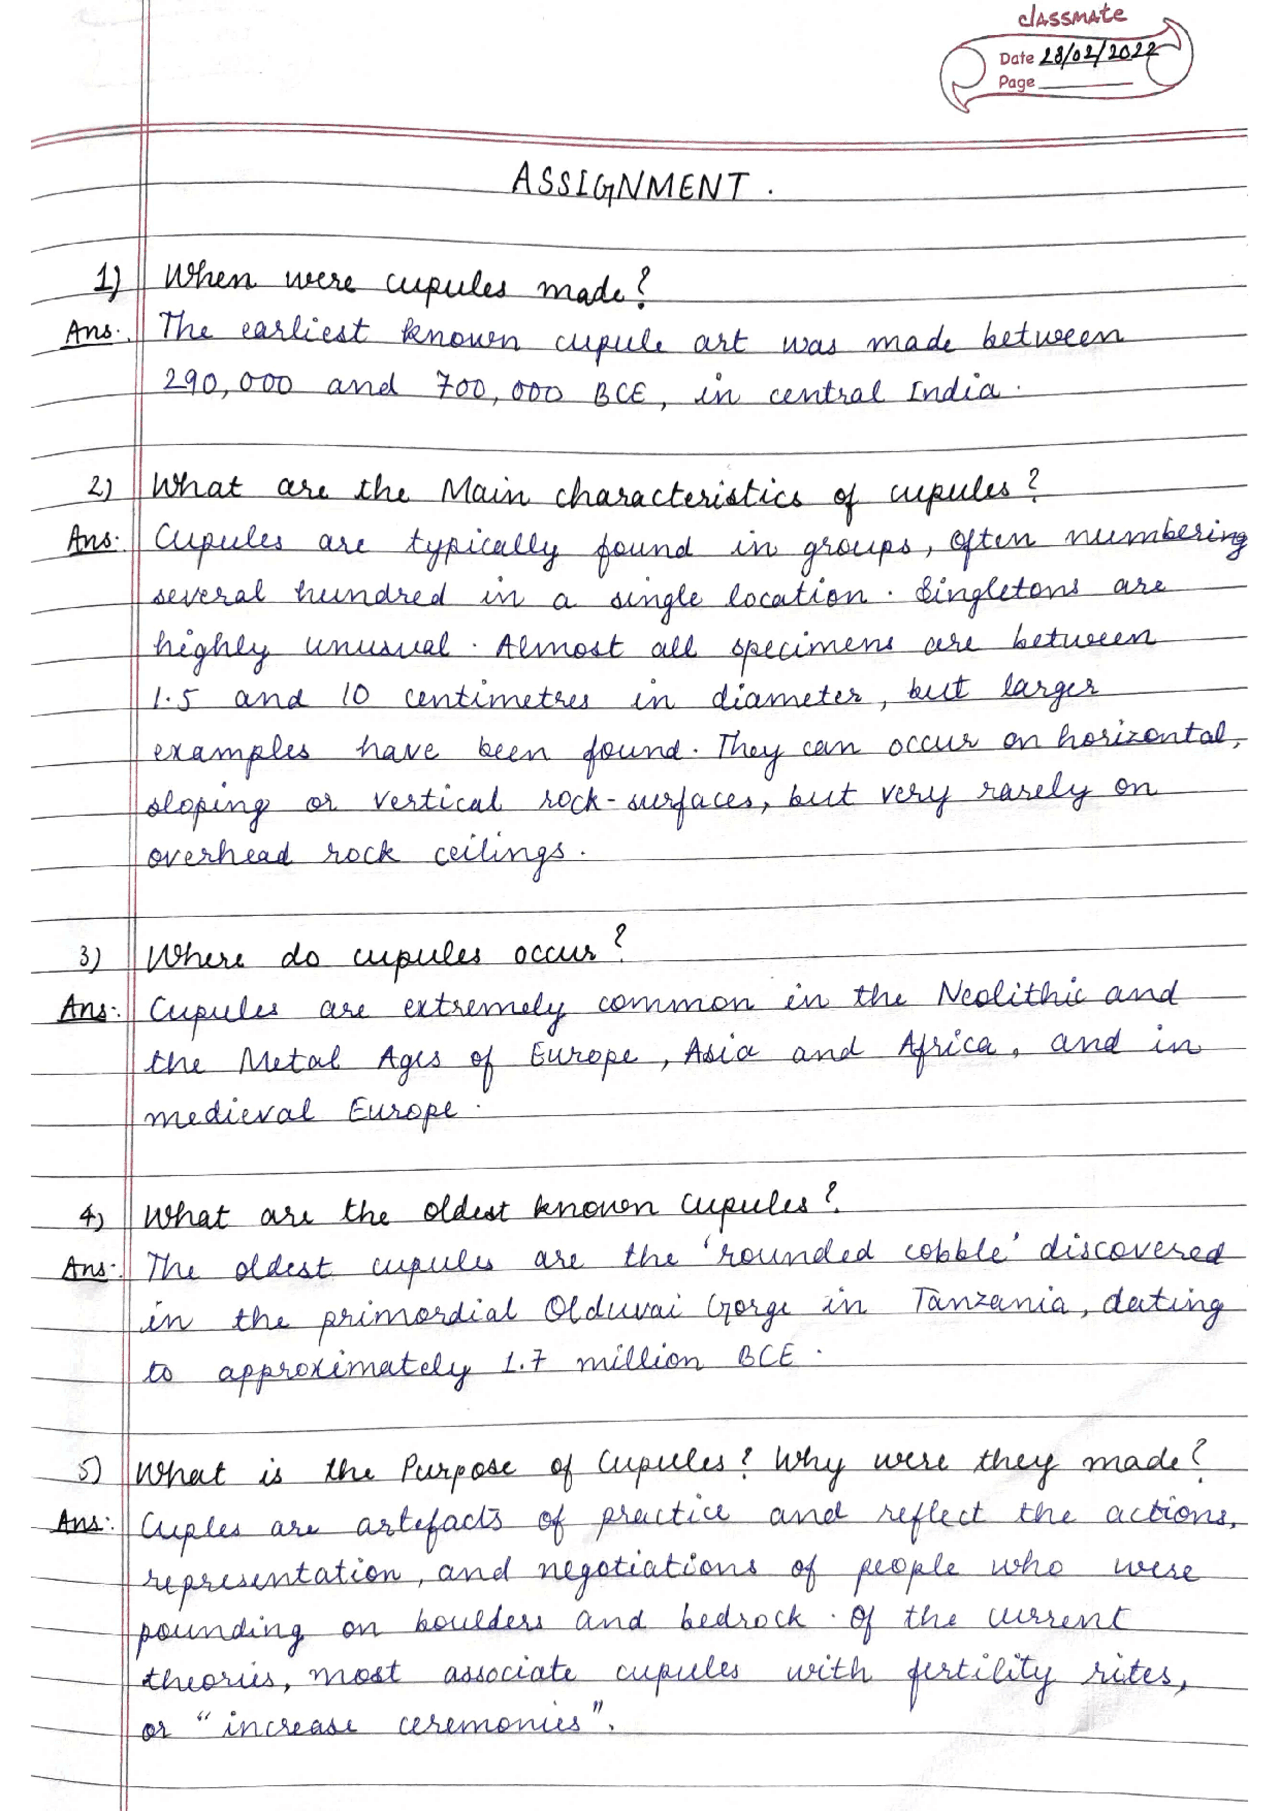 classmate
Date 28/02/2022
Page
ASSIGNMENT.
1) When were cupules made?
Ans:. The earliest known cupule art was made between
290,000 and 700,000 BCE, in central India.
2) What are the Main characteristics of cupules?
Ans:. Cupules are typically found in groups, often numbering
several hundred in a single location. Singletons are
highly unusual. Almost all specimens are between
1.5 and 10 centimetres in diameter, but larger
examples have been found. They can occur on horizontal,
sloping or vertical rock-surfaces, but very rarely on
overhead rock ceilings.
3) Where do cupules occur?
Ans:. Cupules are extremely common in the Neolithic and
the Metal Ages of Europe, Asia and Africa, and in
medieval Europe.
4) What are the oldest known cupules?
Ans:. The oldest cupules are the 'rounded cobble' discovered
in the primordial Olduvai Gorge in Tanzania, dating
to approximately 1.7 million BCE.
5) What is the Purpose of Cupules? Why were they made?
Ans:. Cuples are artefacts of practice and reflect the actions,
representation, and negotiations of people who were
pounding on boulders and bedrock. Of the current
theories, most associate cupules with fertility rites,
or "increase ceremonies".